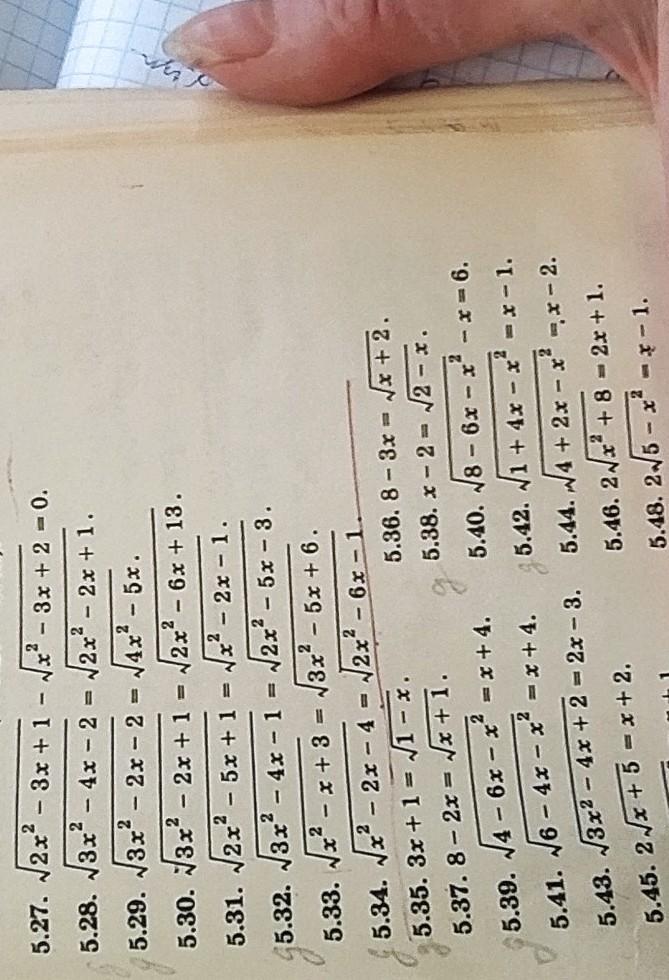 5.27. √(2x² − 3x + 1) − √(x² − 3x + 2) = 0.
5.28. √(3x² − 4x − 2) = √(2x² − 2x + 1).
5.29. √(3x² − 2x − 2) = √(4x² − 5x).
5.30. √(3x² − 2x + 1) = √(2x² − 6x + 13).
5.31. √(2x² − 5x + 1) = √(x² − 2x − 1).
5.32. √(3x² − 4x − 1) = √(2x² − 5x − 3).
5.33. √(x² − x + 3) = √(3x² − 5x + 6).
5.34. √(x² − 2x − 4) = √(2x² − 6x − 1).
5.35. 3x + 1 = √(1 − x). 5.36. 8 − 3x = √(x + 2).
5.37. 8 − 2x = √(x + 1). 5.38. x − 2 = √(2 − x).
5.39. √(4 − 6x − x²) = x + 4. 5.40. √(8 − 6x − x²) − x = 6.
5.41. √(6 − 4x − x²) = x + 4. 5.42. √(1 + 4x − x²) = x − 1.
5.43. √(3x² − 4x + 2) = 2x − 3. 5.44. √(4 + 2x − x²) = x − 2.
5.45. 2√(x + 5) = x + 2. 5.46. 2√(x² + 8) = 2x + 1.
5.48. 2√(5 − x²) = x − 1.